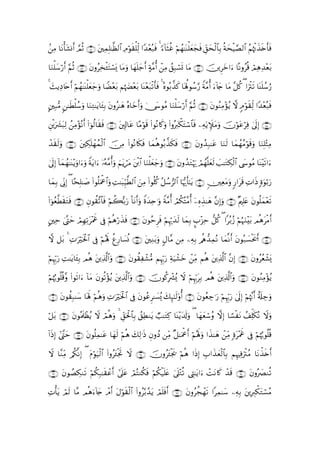 فَأَخَذَتْهُمُ الصَّيْحَةُ بِالْحَقِّ فَجَعَلْنَاهُمْ غُثَاءً ۚ فَبُعْدًا لِّلْقَوْمِ الظَّالِمِينَ ۝ ثُمَّ أَنشَأْنَا مِن
بَعْدِهِمْ قُرُونًا آخَرِينَ ۝ مَا تَسْبِقُ مِنْ أُمَّةٍ أَجَلَهَا وَمَا يَسْتَأْخِرُونَ ۝ ثُمَّ أَرْسَلْنَا
رُسُلَنَا تَتْرَىٰ ۖ كُلَّ مَا جَاءَ أُمَّةً رَّسُولُهَا كَذَّبُوهُ ۚ فَأَتْبَعْنَا بَعْضَهُم بَعْضًا وَجَعَلْنَاهُمْ أَحَادِيثَ ۚ
فَبُعْدًا لِّقَوْمٍ لَّا يُؤْمِنُونَ ۝ ثُمَّ أَرْسَلْنَا مُوسَىٰ وَأَخَاهُ هَارُونَ بِآيَاتِنَا وَسُلْطَانٍ مُّبِينٍ
۝ إِلَىٰ فِرْعَوْنَ وَمَلَئِهِ فَاسْتَكْبَرُوا وَكَانُوا قَوْمًا عَالِينَ ۝ فَقَالُوا أَنُؤْمِنُ لِبَشَرَيْنِ
مِثْلِنَا وَقَوْمُهُمَا لَنَا عَابِدُونَ ۝ فَكَذَّبُوهُمَا فَكَانُوا مِنَ الْمُهْلَكِينَ ۝ وَلَقَدْ
آتَيْنَا مُوسَى الْكِتَابَ لَعَلَّهُمْ يَهْتَدُونَ ۝ وَجَعَلْنَا ابْنَ مَرْيَمَ وَأُمَّهُ آيَةً وَآوَيْنَاهُمَا إِلَىٰ
رَبْوَةٍ ذَاتِ قَرَارٍ وَمَعِينٍ ۝ يَا أَيُّهَا الرُّسُلُ كُلُوا مِنَ الطَّيِّبَاتِ وَاعْمَلُوا صَالِحًا ۖ إِنِّي بِمَا
تَعْمَلُونَ عَلِيمٌ ۝ وَإِنَّ هَٰذِهِ أُمَّتُكُمْ أُمَّةً وَاحِدَةً وَأَنَا رَبُّكُمْ فَاتَّقُونِ ۝ فَتَقَطَّعُوا
أَمْرَهُم بَيْنَهُمْ زُبُرًا ۖ كُلُّ حِزْبٍ بِمَا لَدَيْهِمْ فَرِحُونَ ۝ فَذَرْهُمْ فِي غَمْرَتِهِمْ حَتَّىٰ حِينٍ
۝ أَيَحْسَبُونَ أَنَّمَا نُمِدُّهُم بِهِ مِن مَّالٍ وَبَنِينَ ۝ نُسَارِعُ لَهُمْ فِي الْخَيْرَاتِ ۚ بَل لَّا
يَشْعُرُونَ ۝ إِنَّ الَّذِينَ هُم مِّنْ خَشْيَةِ رَبِّهِم مُّشْفِقُونَ ۝ وَالَّذِينَ هُم بِآيَاتِ رَبِّهِمْ
يُؤْمِنُونَ ۝ وَالَّذِينَ هُم بِرَبِّهِمْ لَا يُشْرِكُونَ ۝ وَالَّذِينَ يُؤْتُونَ مَا آتَوا وَّقُلُوبُهُمْ
وَجِلَةٌ أَنَّهُمْ إِلَىٰ رَبِّهِمْ رَاجِعُونَ ۝ أُولَٰئِكَ يُسَارِعُونَ فِي الْخَيْرَاتِ وَهُمْ لَهَا سَابِقُونَ
۝ وَلَا نُكَلِّفُ نَفْسًا إِلَّا وُسْعَهَا ۖ وَلَدَيْنَا كِتَابٌ يَنطِقُ بِالْحَقِّ ۚ وَهُمْ لَا يُظْلَمُونَ ۝ بَلْ
قُلُوبُهُمْ فِي غَمْرَةٍ مِّنْ هَٰذَا وَلَهُمْ أَعْمَالٌ مِّن دُونِ ذَٰلِكَ هُمْ لَهَا عَامِلُونَ ۝ حَتَّىٰ إِذَا
أَخَذْنَا مُتْرَفِيهِم بِالْعَذَابِ إِذَا هُمْ يَجْأَرُونَ ۝ لَا تَجْأَرُوا الْيَوْمَ ۖ إِنَّكُم مِّنَّا لَا
تُنصَرُونَ ۝ قَدْ كَانَتْ آيَاتِي تُتْلَىٰ عَلَيْكُمْ فَكُنتُمْ عَلَىٰ أَعْقَابِكُمْ تَنكِصُونَ ۝
مُسْتَكْبِرِينَ بِهِ سَامِرًا تَهْجُرُونَ ۝ أَفَلَمْ يَدَّبَّرُوا الْقَوْلَ أَمْ جَاءَهُم مَّا لَمْ يَأْتِ